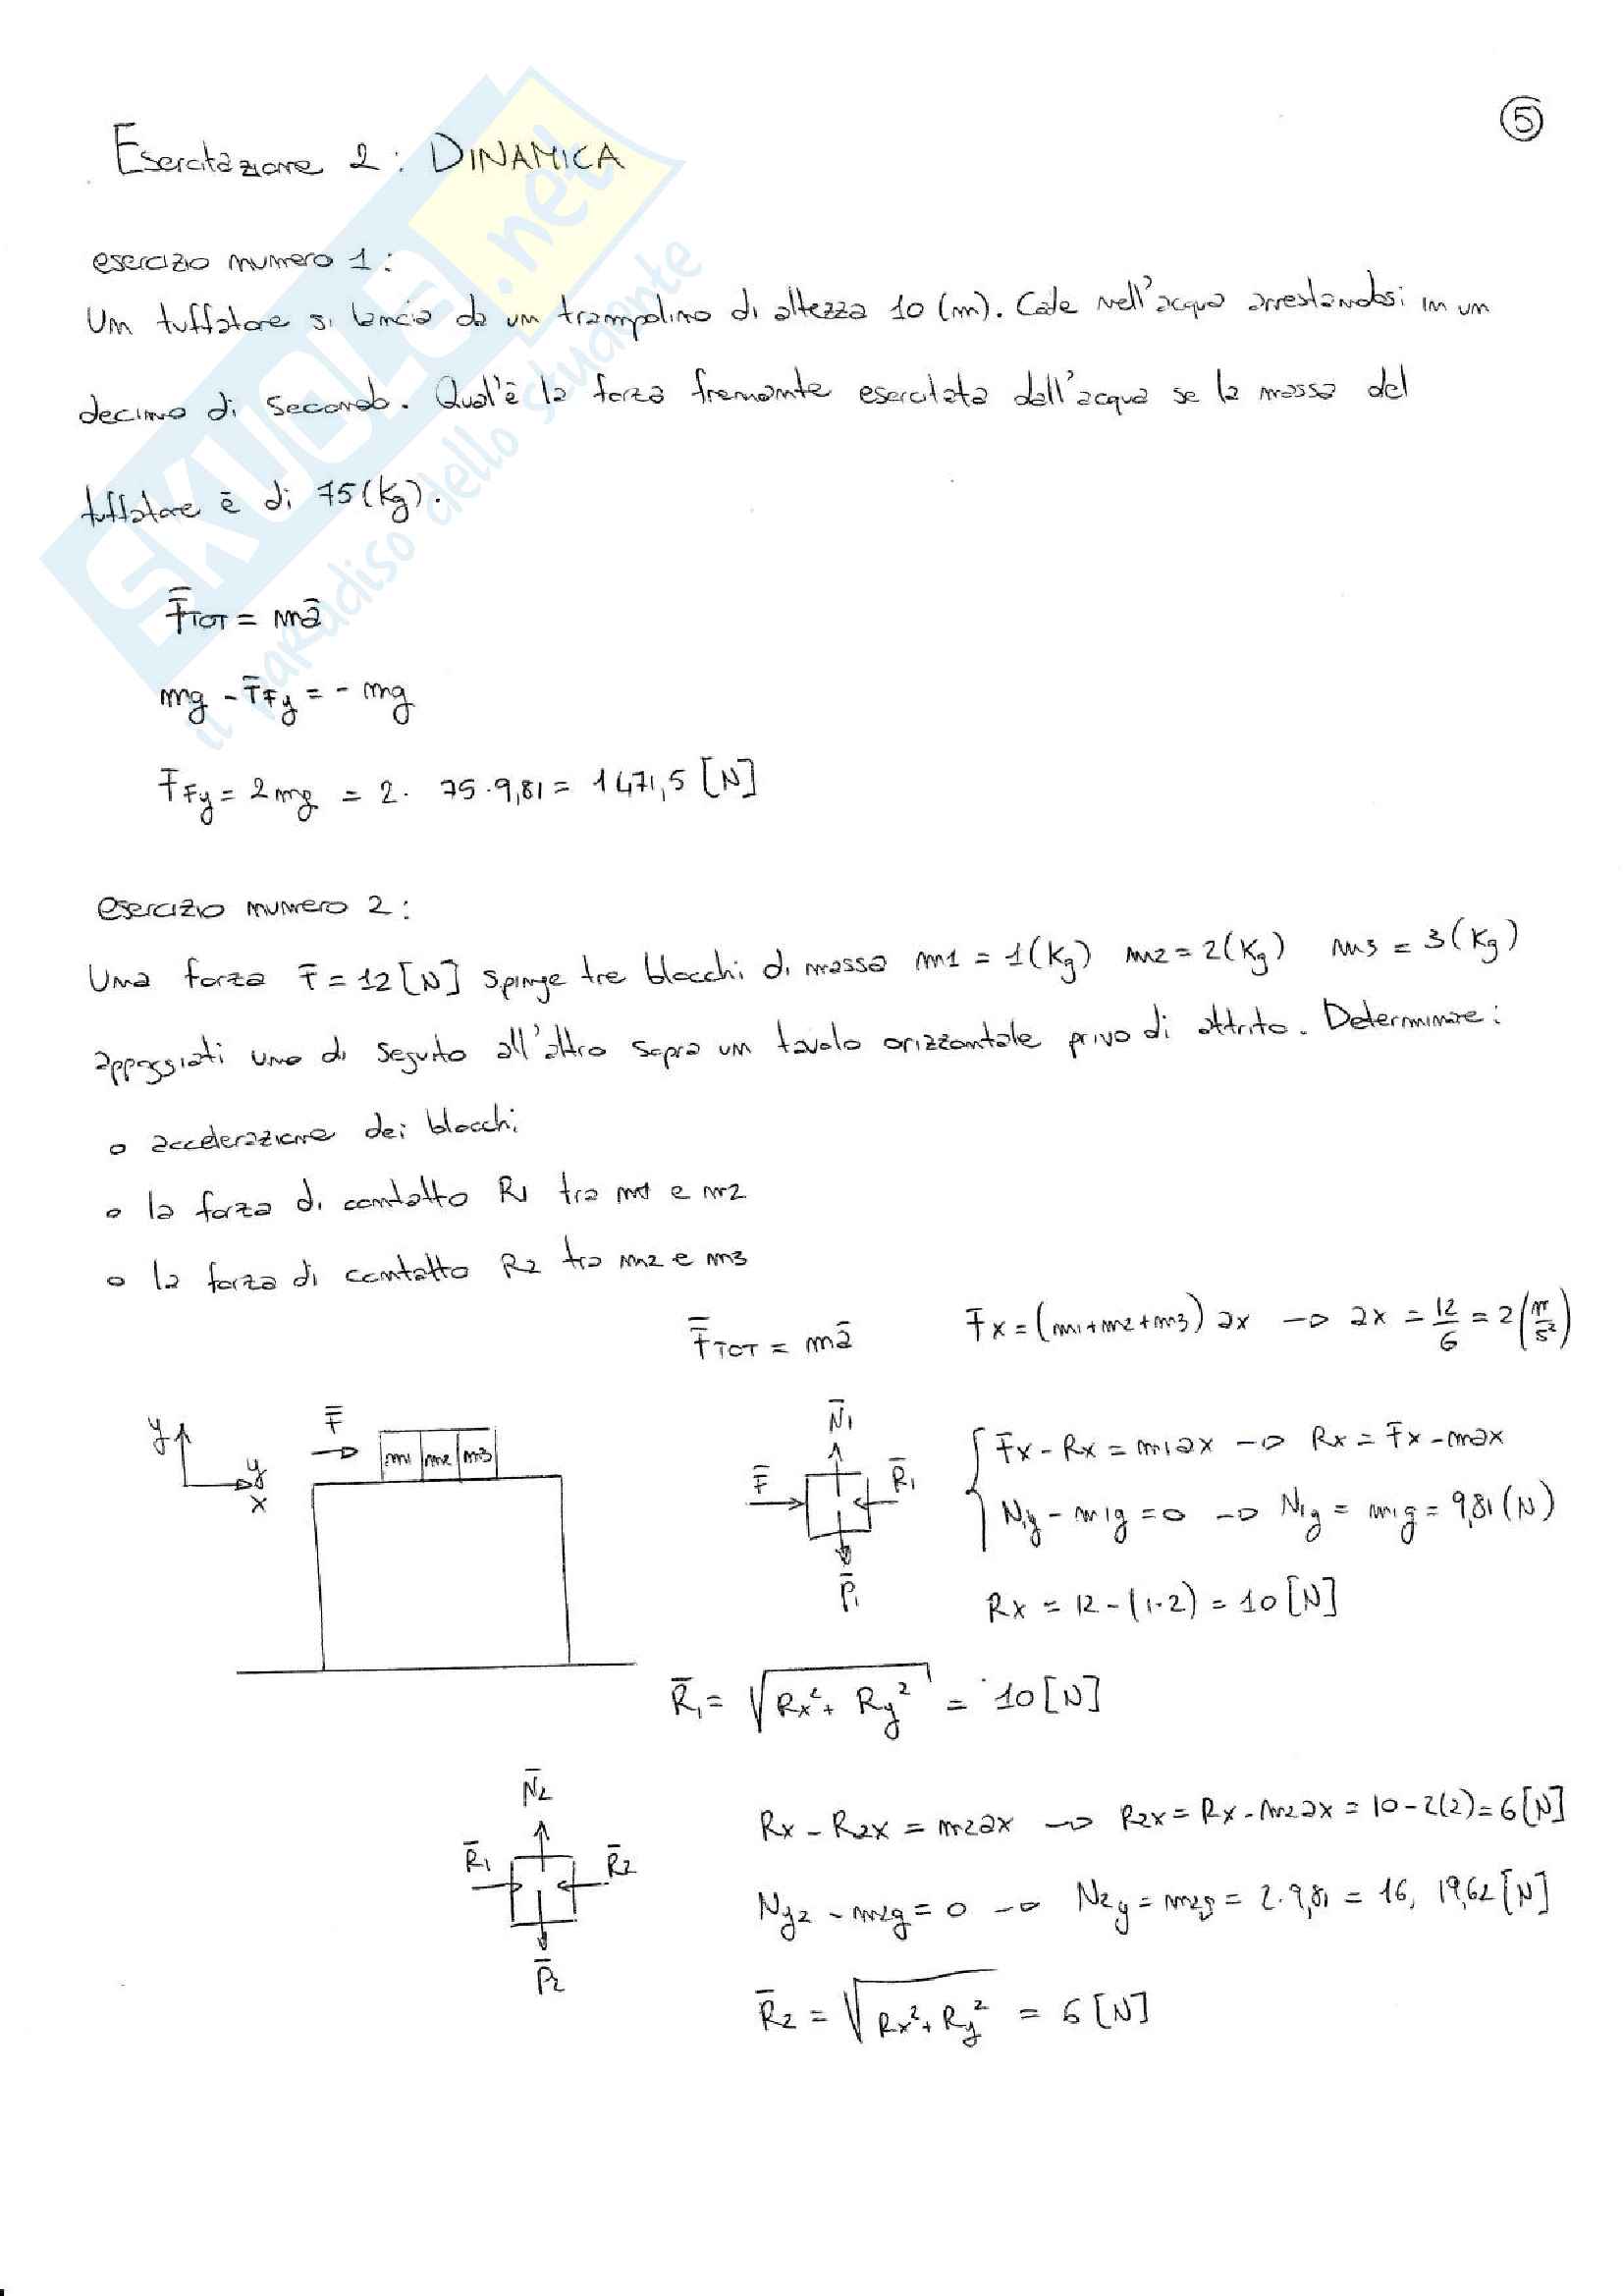 5
Esercitazione 2: DINAMICA
esercizio numero 1:
Un tuffatore si lancia da un trampolino di altezza 10 (m). Cade nell'acqua arrestandosi in un
decimo di secondo. Qual'è la forza frenante esercitata dall'acqua se la massa del
tuffatore è di 75 (Kg).
F̄TOT = mā
mg - F̄Fy = - mg
FFy = 2mg = 2 · 75 · 9,81 = 1471,5 [N]
esercizio numero 2:
Una forza F̄ = 12 [N] spinge tre blocchi di massa m1 = 1 (Kg) m2 = 2 (Kg) m3 = 3 (Kg)
appoggiati uno di seguito all'altro sopra un tavolo orizzontale privo di attrito. Determinare:
o accelerazione dei blocchi
o la forza di contatto R1 tra m1 e m2
o la forza di contatto R2 tra m2 e m3
F̄TOT = mā Fx = (m1+m2+m3) ax → ax = 12/6 = 2 (m/s²)
y x F̄ m1 m2 m3
N̄1 F̄ R̄1 P̄1
Fx - Rx = m1ax → Rx = Fx - max
N1y - m1g = 0 → N1y = m1g = 9,81 (N)
Rx = 12 - (1·2) = 10 [N]
R̄1 = √Rx² + Ry² = 10 [N]
N̄2 R̄1 R̄2 P̄2
Rx - R2x = m2ax → R2x = Rx - m2ax = 10 - 2(2) = 6 [N]
Ny2 - m2g = 0 → N2y = m2g = 2 · 9,81 = 16, 19,62 [N]
R̄2 = √Rx² + Ry² = 6 [N]
SKUOLA.net
il paradiso dello studente